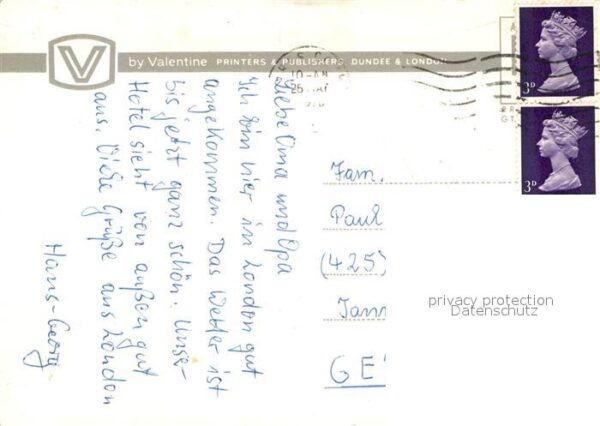 V
by Valentine PRINTERS & PUBLISHERS, DUNDEE & LONDON
10-AM
3D
3D
Liebe Oma und Opa
Ich bin hier in London gut
angekommen. Das Wetter ist
bis jetzt ganz schön. Unser
Hotel sieht von außen gut
aus. Viele Grüße aus London
Hans-Georg
Fam.
Paul
(425)
GE
privacy protection
Datenschutz